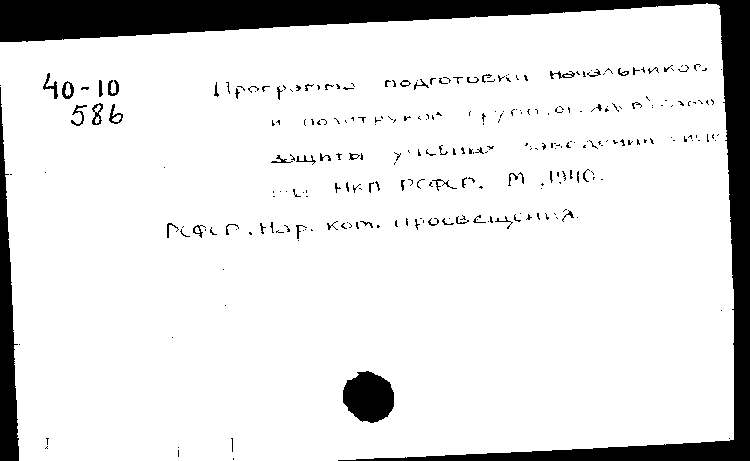 40-10
586
Программа подготовки начальников
и политруков групп
защиты учебных заведений
НКП РСФСР. М., 1940.
РСФСР. Нар. ком. просвещения.